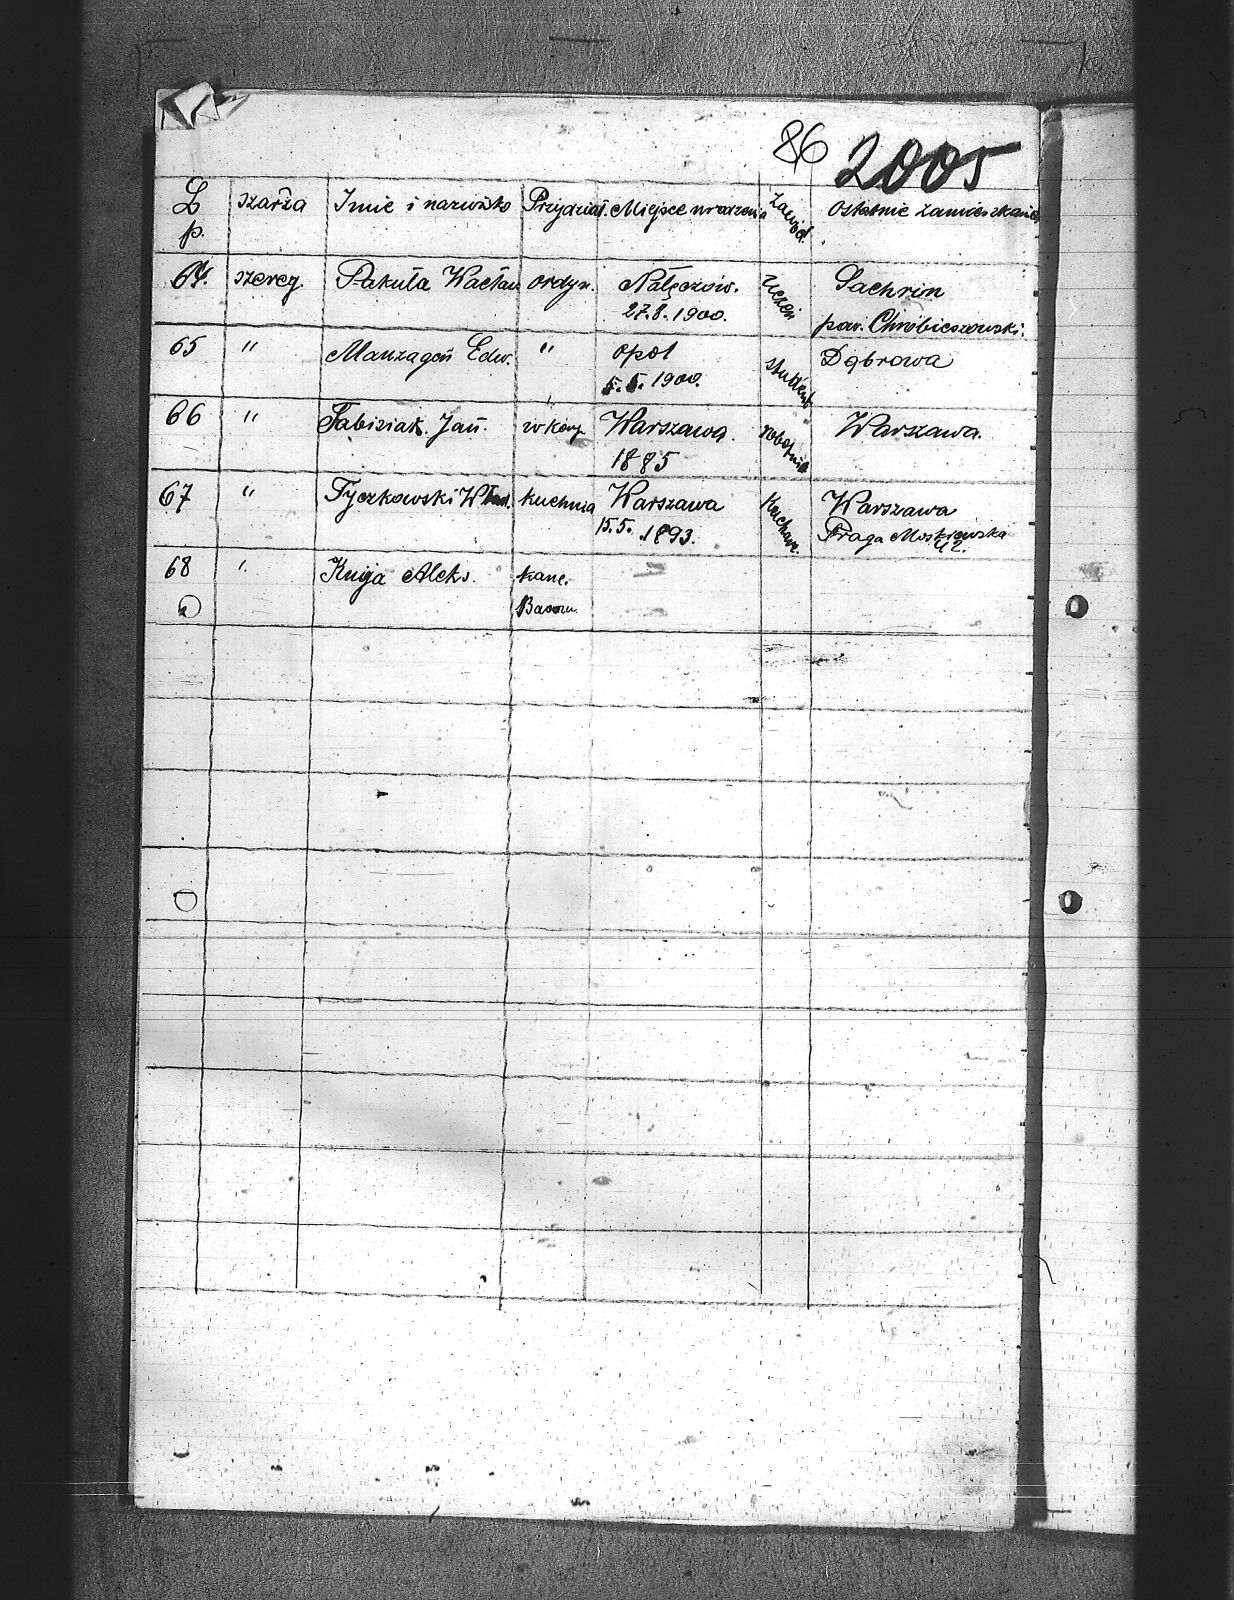 86 2005
L p. szarża Imie i nazwisko Przydział Miejsce urodzenia zawód. Ostatnie zamieszkanie
64. szereg. Pakuła Wacław ordyn. Nałęczów. 27.8.1900. uczeń Sachrin pow. Chrobieszowski.
65 " Manzagoń Edw. " opol 5.5.1900. student Dąbrowa
66 " Fabisiak Jan. Warszawa. 1885 robotnik Warszawa.
67 " Tyczkowski Wład. kuchnia Warszawa 15.5.1893. Kucharz. Warszawa Praga Moskiewska 42.
68 " Knija Aleks. kanc.